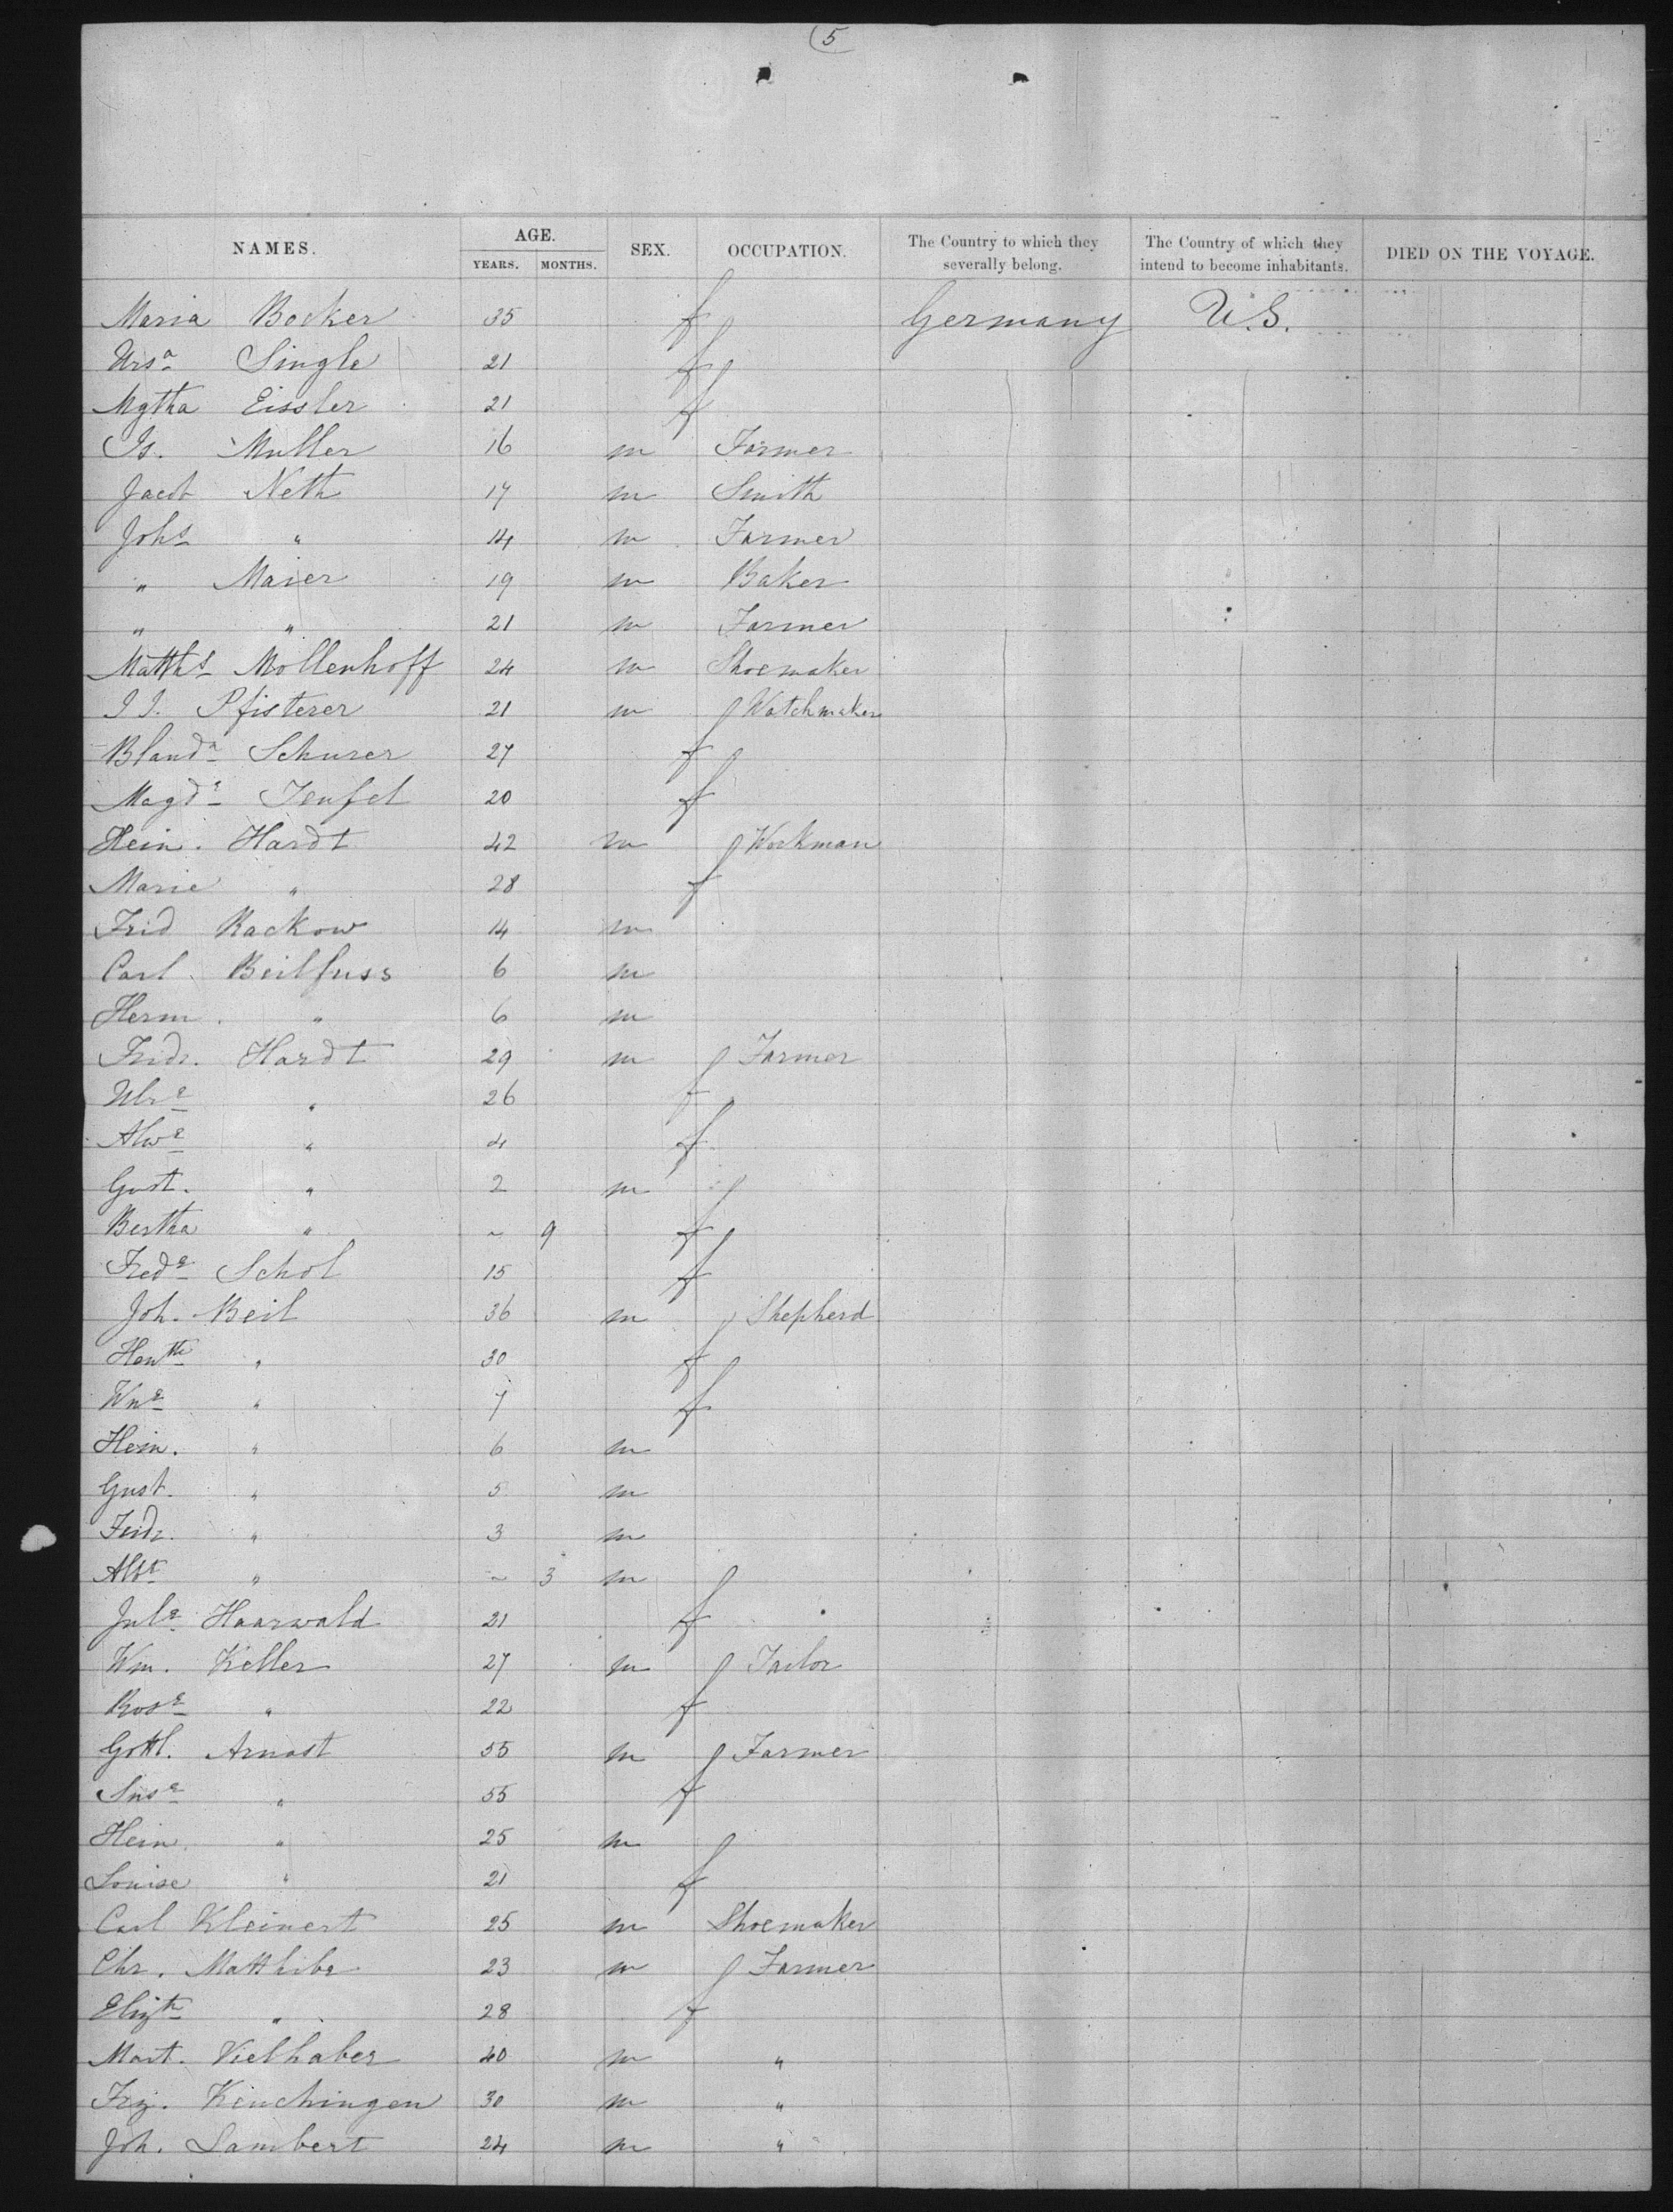 5
NAMES. AGE. SEX. OCCUPATION. The Country to which they severally belong. The Country of which they intend to become inhabitants. DIED ON THE VOYAGE.
YEARS. MONTHS.
Maria Bocker 35 f Germany U.S.
Ursa Single 21 f
Mgtha Eissler 21 f
Is. Muller 16 m Farmer
Jacob Neth 17 m Smith
Johs " 14 m Farmer
" Maier 19 m Baker
" " 21 m Farmer
Matths Mollenhoff 24 m Shoemaker
J J. Pfisterer 21 m Watchmaker
Blanda Schurer 27 f
Magde Teufel 20 f
Hein. Hardt 42 m Workman
Marie " 28 f
Frid Rackow 14 m
Carl Beilfuss 6 m
Herm. " 6 m
Fridr. Hardt 29 m Farmer
Ulre " 26 f
Alwe " 4 f
Gust. " 2 m
Bertha " ~ 9 f
Frede Schol 15 f
Joh. Beil 36 m Shepherd
Hentte " 30 f
Wne " 7 f
Hein. " 6 m
Gust. " 5 m
Fridr. " 3 m
Albt " ~ 3 m
Jule Haarwald 21 f
Wm. Keller 27 m Tailor
Rose " 22 f
Gottl. Arnast 55 m Farmer
Suse " 55 f
Hein. " 25 m
Louise " 21 f
Carl Kleinert 25 m Shoemaker
Chr. 23 m Farmer
Elizth " 28 f
Mart. Vielhaber 40 m "
Frz. Kenchingen 30 m "
Joh. Lambert 24 m "